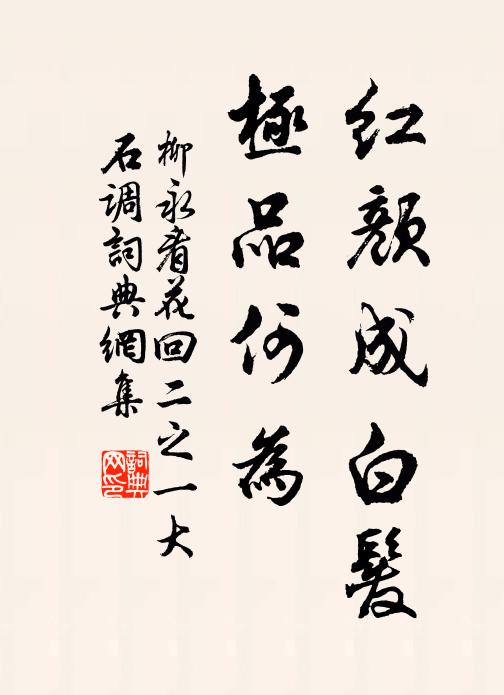 红颜成白髮
極品何為
柳永看花回二之一大
石调詞典網集
詞典网印